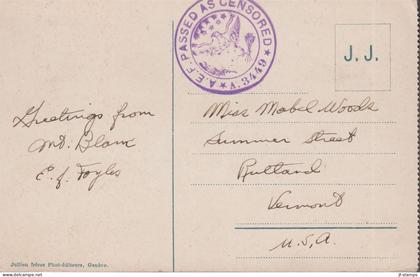 A.E.F. PASSED AS CENSORED
A.3449
J. J.
Greetings from
Mt. Blanc
E. J. Foyles
Miss Mabel Woods
Summer Street
Rutland
Vermont
U.S.A.
Jullien frères Phot-éditeurs, Genève.